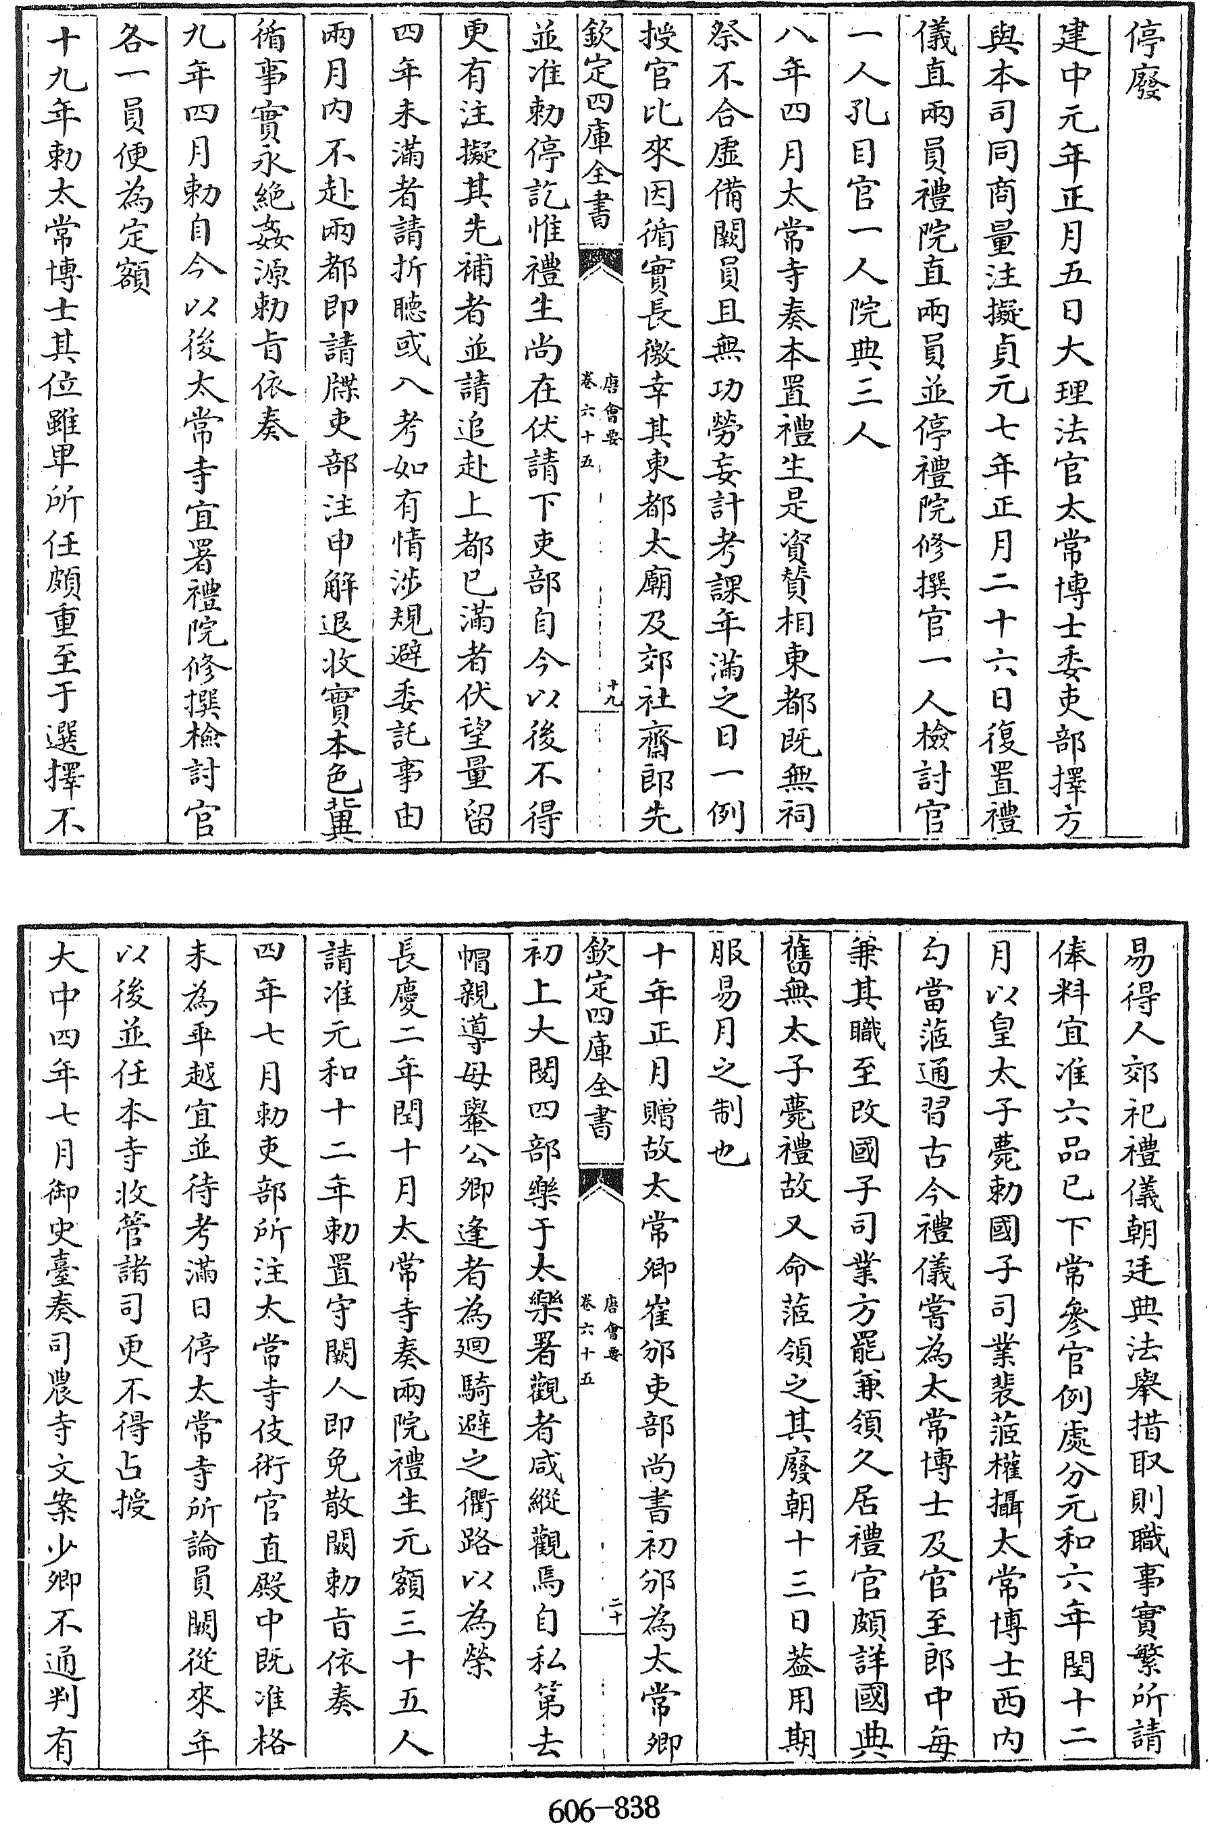 停廢
建中元年正月五日大理法官太常博士委吏部擇方
與本司同商量注擬貞元七年正月二十六日復置禮
儀直兩員禮院直兩員並停禮院修撰官一人檢討官
一人孔目官一人院典三人
八年四月太常寺奏本置禮生是資贊相東都既無祠
祭不合虛備闕員且無功勞妄計考課年滿之日一例
授官比來因循實長徼幸其東都太廟及郊社齋郎先
欽定四庫全書
唐會要
卷六十五
十九
並准勅停訖惟禮生尚在伏請下吏部自今以後不得
更有注擬其先補者並請追赴上都已滿者伏望量留
四年未滿者請折聽或八考如有情涉規避委託事由
兩月內不赴兩都即請牒吏部注申解退收實本色冀
循事實永絕姦源勅旨依奏
九年四月勅自今以後太常寺宜署禮院修撰檢討官
各一員便為定額
十九年勅太常博士其位雖卑所任頗重至于選擇不
易得人郊祀禮儀朝廷典法舉措取則職事實繁所請
俸料宜准六品已下常參官例處分元和六年閏十二
月以皇太子薨勅國子司業裴蒞權攝太常博士西內
勾當蒞通習古今禮儀嘗為太常博士及官至郎中每
兼其職至改國子司業方罷兼領久居禮官頗詳國典
舊無太子薨禮故又命蒞領之其廢朝十三日蓋用期
服易月之制也
十年正月贈故太常卿崔邠吏部尚書初邠為太常卿
欽定四庫全書
唐會要
卷六十五
二十
初上大閱四部樂于太樂署觀者咸縱觀焉自私第去
帽親導母轝公卿逢者為廻騎避之衢路以為榮
長慶二年閏十月太常寺奏兩院禮生元額三十五人
請准元和十二年勅置守闕人即免散闕勅旨依奏
四年七月勅吏部所注太常寺伎術官直殿中既准格
未為乖越宜並待考滿日停太常寺所論員闕從來年
以後並任本寺收管諸司更不得占授
大中四年七月御史臺奏司農寺文案少卿不通判有
606-838